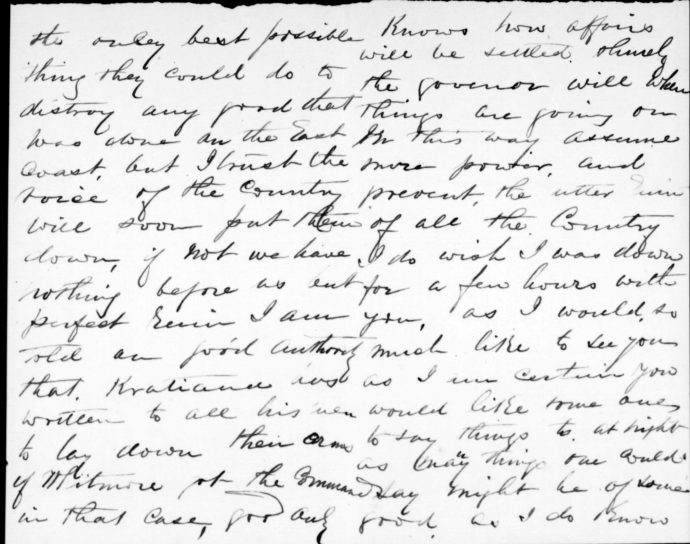 the onley best possible
thing they could do to
distroy any good that
was done on the East
Coast, but I trust the
voice of the Country
will soon put them
down, if not we have
nothing before us but
perfect Ruin I am
told on good authority
that. Kratiana has
written to all his men
to lay down their arms
if Witmore at the Command
in that case, god only
Knows how affairs
will be settled. Shurely
the govenor will when
things are going on
In this way assume
more power, and
prevent, the utter Ruin
of all the Country
I do wish I was down
for a few hours with
you, as I would, so
much like to see you
as I am certain you
would like some one
to say things to. at night
as many things one could
say might be of some
good. as I do Know